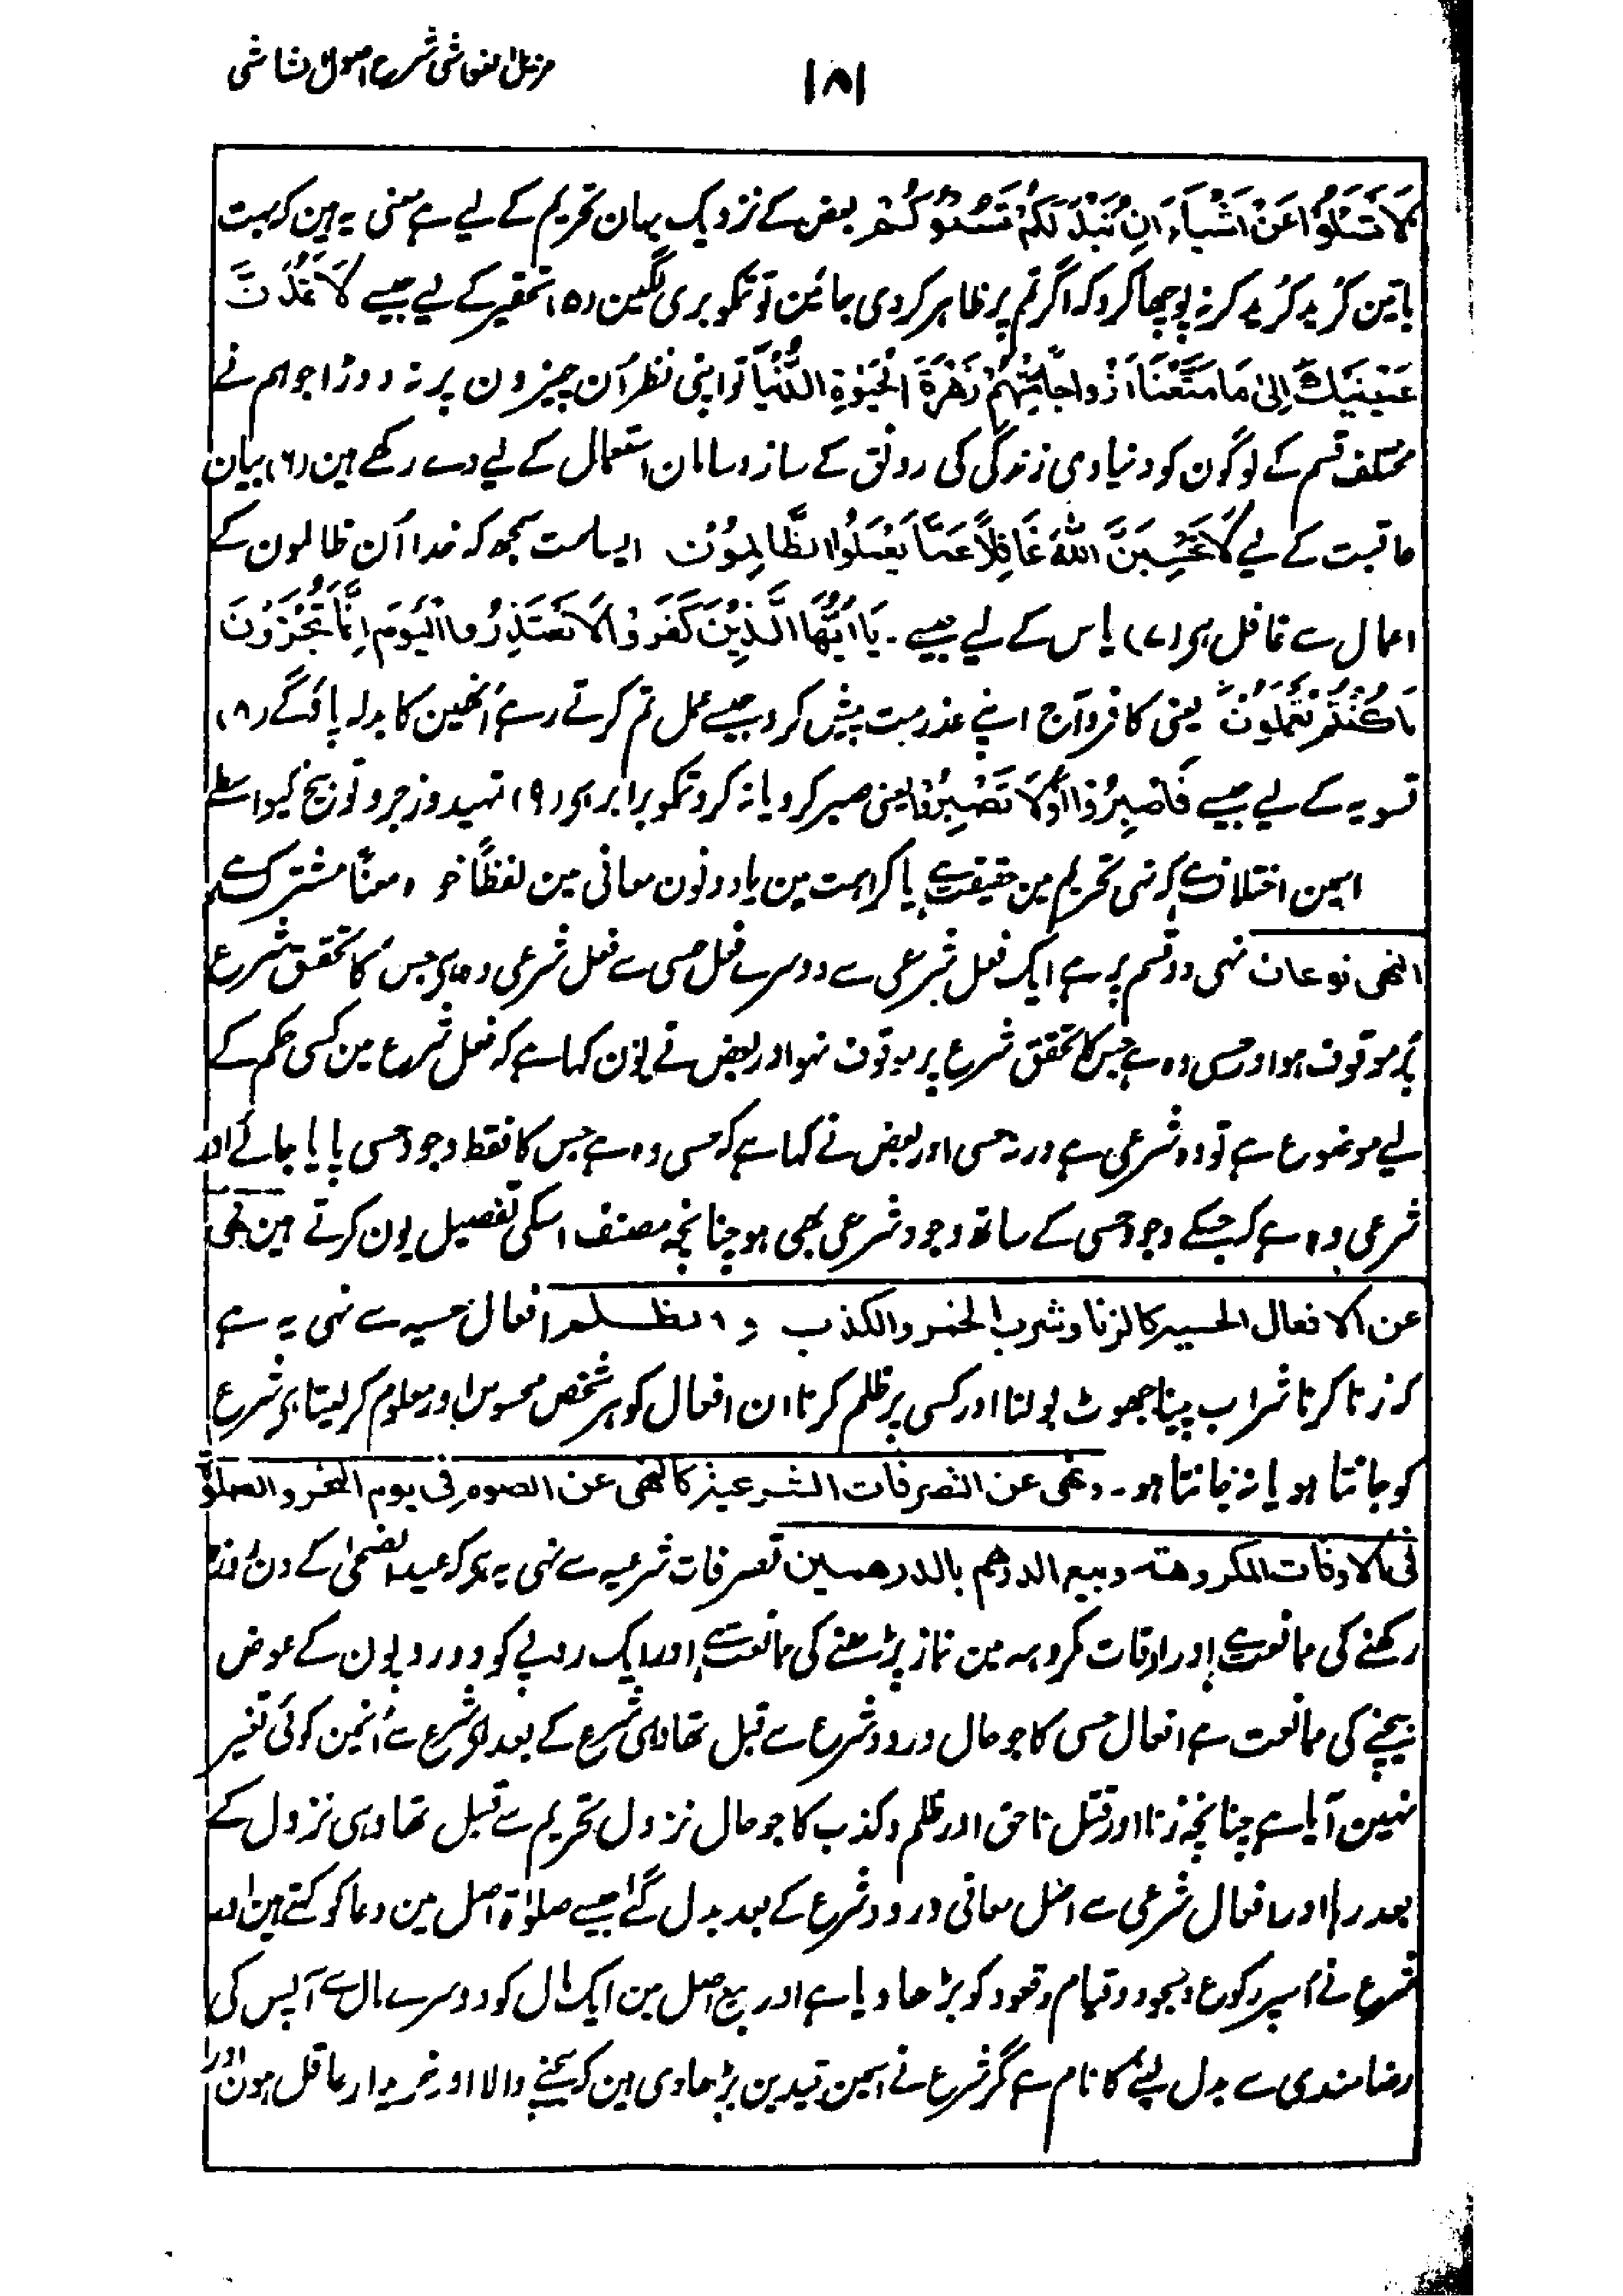 مزیل الغواشی شرح اصول الشاشی
۱۸۱
لَا تَسْئَلُوْا عَنْ اَشْیَاءَ اِنْ تُبْدَ لَکُمْ تَسُؤْکُمْ بعض کے نزدیک یہان تحریم کے لیے ہے معنی یہ ہین کہ بہت
باتین کُرید کُرید کر نہ پوچھا کرو کہ اگر تم پر ظاہر کر دی جائین تو تمکو بری لگین (۵) تحقیر کے لیے جیسے لَا تَمُدَّنَّ
عَیْنَیْكَ اِلٰی مَا مَتَّعْنَا بِهٖ اَزْوَاجًا مِّنْهُمْ زَهْرَةَ الْحَیٰوةِ الدُّنْیَا تو اپنی نظر اُن چیزون پر نہ دوڑا جو ہم نے
مختلف قسم کے لوگون کو دنیاوی زندگی کی رونق کے ساز و سامان استعمال کے لیے دے رکھے ہین (۶) بیان
عاقبت کے لیے لَا تَحْسَبَنَّ اللّٰهَ غَافِلًا عَمَّا یَعْمَلُ الظَّالِمُوْنَ ایسا مت سمجھ کہ خدا اُن ظالمون کے
اعمال سے غافل ہے (۷) یاس کے لیے جیسے ۔ یَا اَیُّهَا الَّذِیْنَ کَفَرُوْا لَا تَعْتَذِرُوا الْیَوْمَ اِنَّمَا تُجْزَوْنَ
مَا کُنْتُمْ تَعْمَلُوْنَ یعنی کافرو آج اپنے عذر مت پیش کرو جیسے عمل تم کرتے رہے اُنھین کا بدلہ پاؤگے (۸)
تسویہ کے لیے جیسے فَاصْبِرُوْا اَوْ لَا تَصْبِرُوْا یعنی صبر کرو یا نہ کرو تمکو برابر ہے (۹) تہدید و زجر و توبیخ کیواسطے
اسمین اختلاف ہے کہ نہی تحریم مین حقیقت ہے یا کراہت مین یا دونون معانی مین لفظًا خواہ معنًا مشترک ہے
النھی نوعان نہی دو قسم پر ہے ایک فعل شرعی سے دوسرے فعل حسی سے فعل شرعی وہ ہے جس کا تحقق شرع
پر موقوف ہو اور حسی وہ ہے جس کا تحقق شرع پر موقوف نہو اور بعض نے یون کہا ہے کہ فعل شرع مین کسی حکم کے
لیے موضوع ہے تو وہ شرعی ہے ورنہ حسی اور بعض نے کہا ہے کہ حسی وہ ہے جس کا فقط وجود حسی پایا جائے اور
شرعی وہ ہے کہ جسکے وجود حسی کے ساتھ وجود شرعی بھی ہو چنانچہ مصنف اسکی تفصیل یون کرتے ہین نھی
عن الافعال الحسیۃ کالزنا و شرب الخمر والکذب و الظلم افعال حسیہ سے نہی یہ ہے
کہ زنا کرنا شراب پینا جھوٹ بولنا اور کسی پر ظلم کرنا ان افعال کو ہر شخص محسوس اور معلوم کر لیتا ہے شرع
کو جانتا ہو یا نہ جانتا ہو ۔ ونھی عن التصرفات الشرعیۃ کالنھی عن الصوم فی یوم النحر والصلوٰۃ
فی الاوقات المکروھۃ وبیع الدرھم بالدرھمین تصرفات شرعیہ سے نہی یہ ہے کہ عید الضحیٰ کے دن روزہ
رکھنے کی ممانعت ہے اور اوقات مکروہہ مین نماز پڑھنے کی ممانعت ہے اور ایک روپے کو دو روپون کے عوض
بیچنے کی ممانعت ہے افعال حسی کا جو حال ورود شرع سے قبل تھا وہی شرع کے بعد ہے شرع سے اُنمین کوئی تغیر
نہین آیا ہے چنانچہ زنا اور قتل ناحق اور ظلم و کذب کا جو حال نزول تحریم سے قبل تھا وہی نزول کے
بعد رہا اور افعال شرعی سے اصل معانی ورود شرع کے بعد بدل گئے جیسے صلوٰۃ اصل مین دعا کو کہتے ہین اور
شرع نے اُسپر رکوع و سجود و قیام و قعود کو بڑھا دیا ہے اور بیع اصل مین ایک مال کو دوسرے مال سے آپس کی
رضامندی سے بدل لینے کا نام ہے مگر شرع نے اسمین قیدین بڑھا دی ہین کہ بیچنے والا اور خریدار عاقل ہون اور